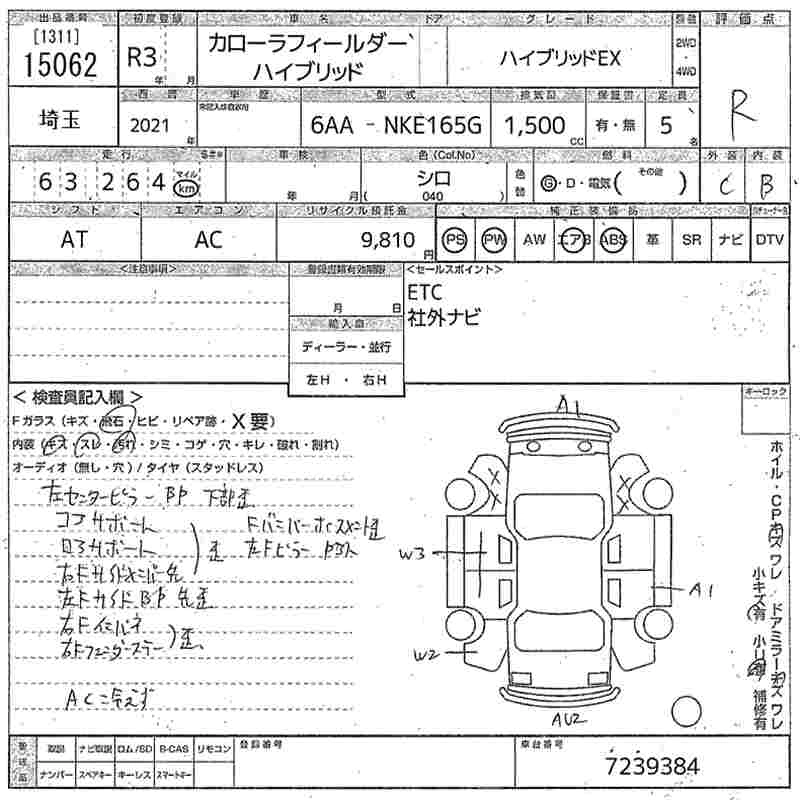 出品番号 初度登録 車名 ドア グレード 評価点
[1311]
15062 R3 年 月 カローラフィールダー
ハイブリッド ハイブリッドEX 2WD・4WD R
埼玉 西暦 車歴 型式 排気量 保証書 定員
2021年 6AA - NKE165G 1,500cc 有・無 5名
走行 車検 色(Col.No) 燃料 外装 内装
63264 マイル km 年 月 シロ (040) 色替 G・D・電気( その他 ) C B
シフト エアコン リサイクル預託金 純正装備品
AT AC 9,810円 PS PW AW エアB ABS 革 SR ナビ DTV
<注意事項> 登録書類有効期限 <セールスポイント>
月 日 ETC
輸入車 社外ナビ
ディーラー・並行
左H ・ 右H
<検査員記入欄> キーロック
Fガラス(キズ・飛石・ヒビ・リペア跡・X要)
内装(キズ・スレ・汚れ・シミ・コゲ・穴・キレ・破れ・割れ)
オーディオ(無し・穴)/タイヤ(スタッドレス)
左センターピラーBP 下部歪
コアサポート
ロアサポート 歪
右Fサイドメンバー先
左FサイドBP先歪
右Fインパネ
右Fフェンダーステー 歪
左Fピラー
ACニ冷えず
A1
W3
A1
W2
AU2
ホイル・CPキズワレ ドアミラーキズワレ
小キズ有 小凹有 補修有
取説 ナビ取説 ロム/SD B-CAS リモコン 登録番号 車台番号
ナンバー スペアキー キーレス スマートキー 7239384